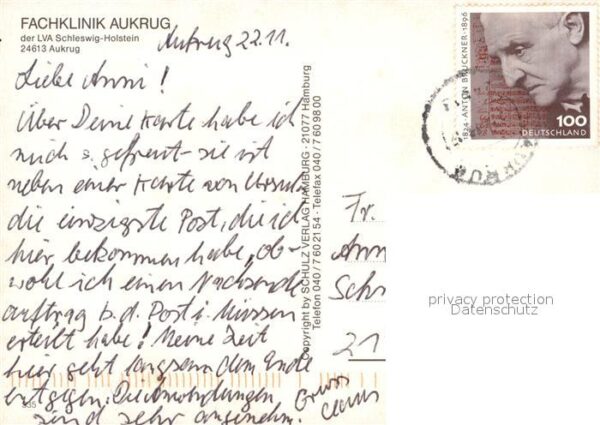 FACHKLINIK AUKRUG
der LVA Schleswig-Holstein
24613 Aukrug
Aukrug 22.11.
Liebe Anni!
Über Deine Karte habe ich
mich s. gefreut - sie ist
neben einer Karte von Ursula
die einzigste Post, die ich
hier bekommen habe, ob-
wohl ich einen Nachsende
auftrag b. d. Post i. Hüssen
erteilt habe! Meine Zeit
hier geht langsam dem Ende
entgegen. Die Anwendungen
sind sehr angenehm.
Gruss
535
Copyright by SCHULZ VERLAG HAMBURG · 21077 Hamburg
Telefon 040/7602154 · Telefax 040/7609800
1824 · ANTON BRUCKNER · 1896
100
DEUTSCHLAND
Fr.
Ann
Sch
21
privacy protection
Datenschutz